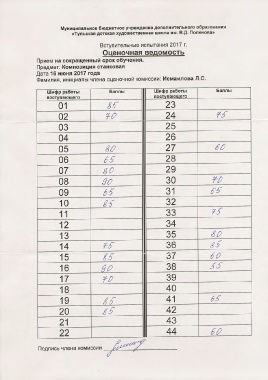 Муниципальное бюджетное учреждение дополнительного образования
«Тульская детская художественная школа им. В.Д. Поленова»
Вступительные испытания 2017 г.
Оценочная ведомость
Прием на сокращенный срок обучения.
Предмет: Композиция станковая
Дата 16 июня 2017 года
Фамилия, инициалы члена оценочной комиссии: Исмаилова Л.С.
Шифр работы поступающего Баллы Шифр работы поступающего Баллы
01 85 23
02 70 24 75
03 25
04 26
05 80 27 60
06 65 28
07 80 29
08 90 30 70
09 65 31 65
10 85 32
11 33 75
12 34
13 35 80
14 75 36 85
15 85 37 60
16 90 38 65
17 70 39
18 40
19 85 41 65
20 85 42
21 43
22 44 60
Подпись члена комиссии